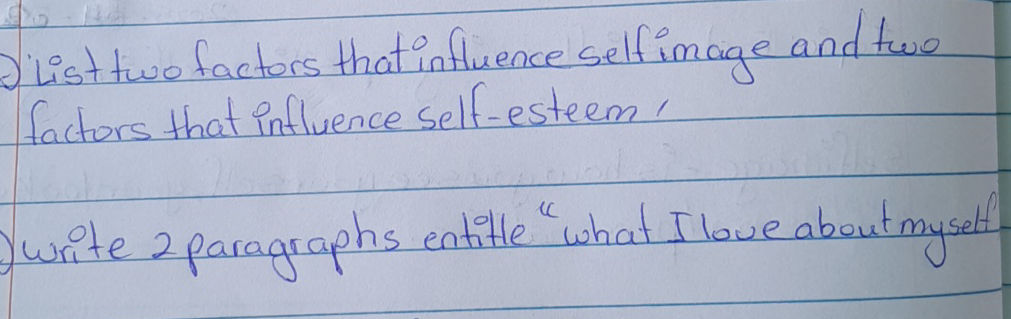 List two factors that influence self image and two
factors that influence self-esteem,
write 2 paragraphs entitle "what I love about myself